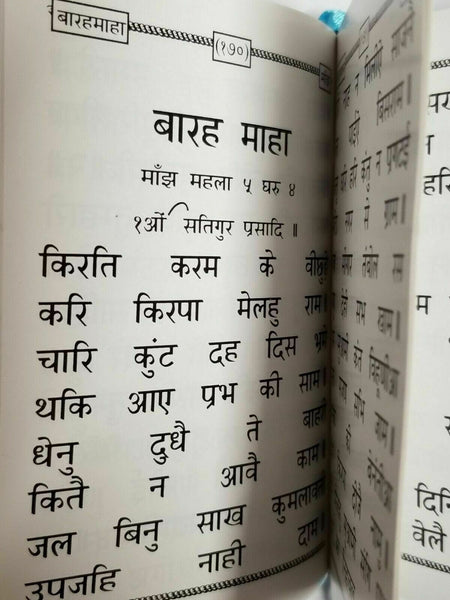 बारहमाहा
(१७०)
बारह माहा
माँझ महला ५ घरु ४
१ओं सतिगुर प्रसादि ॥
किरति करम के वीछुड़े
करि किरपा मेलहु राम।
चारि कुंट दह दिस भ्रमे
थकि आए प्रभ की साम।
धेनु दुधै ते बाहरी
कितै न आवै काम।
जल बिनु साख कुमलावती
उपजहि नाही दाम।
मिलीऐ साजनै
बिसराम।
न प्रगटई
से ग्राम।
तंबोल रस
सभ खाम।
कंत विहूणीआ
जाम।
बेनंतीआ
नामु।
हरि
दिनि
वेलै